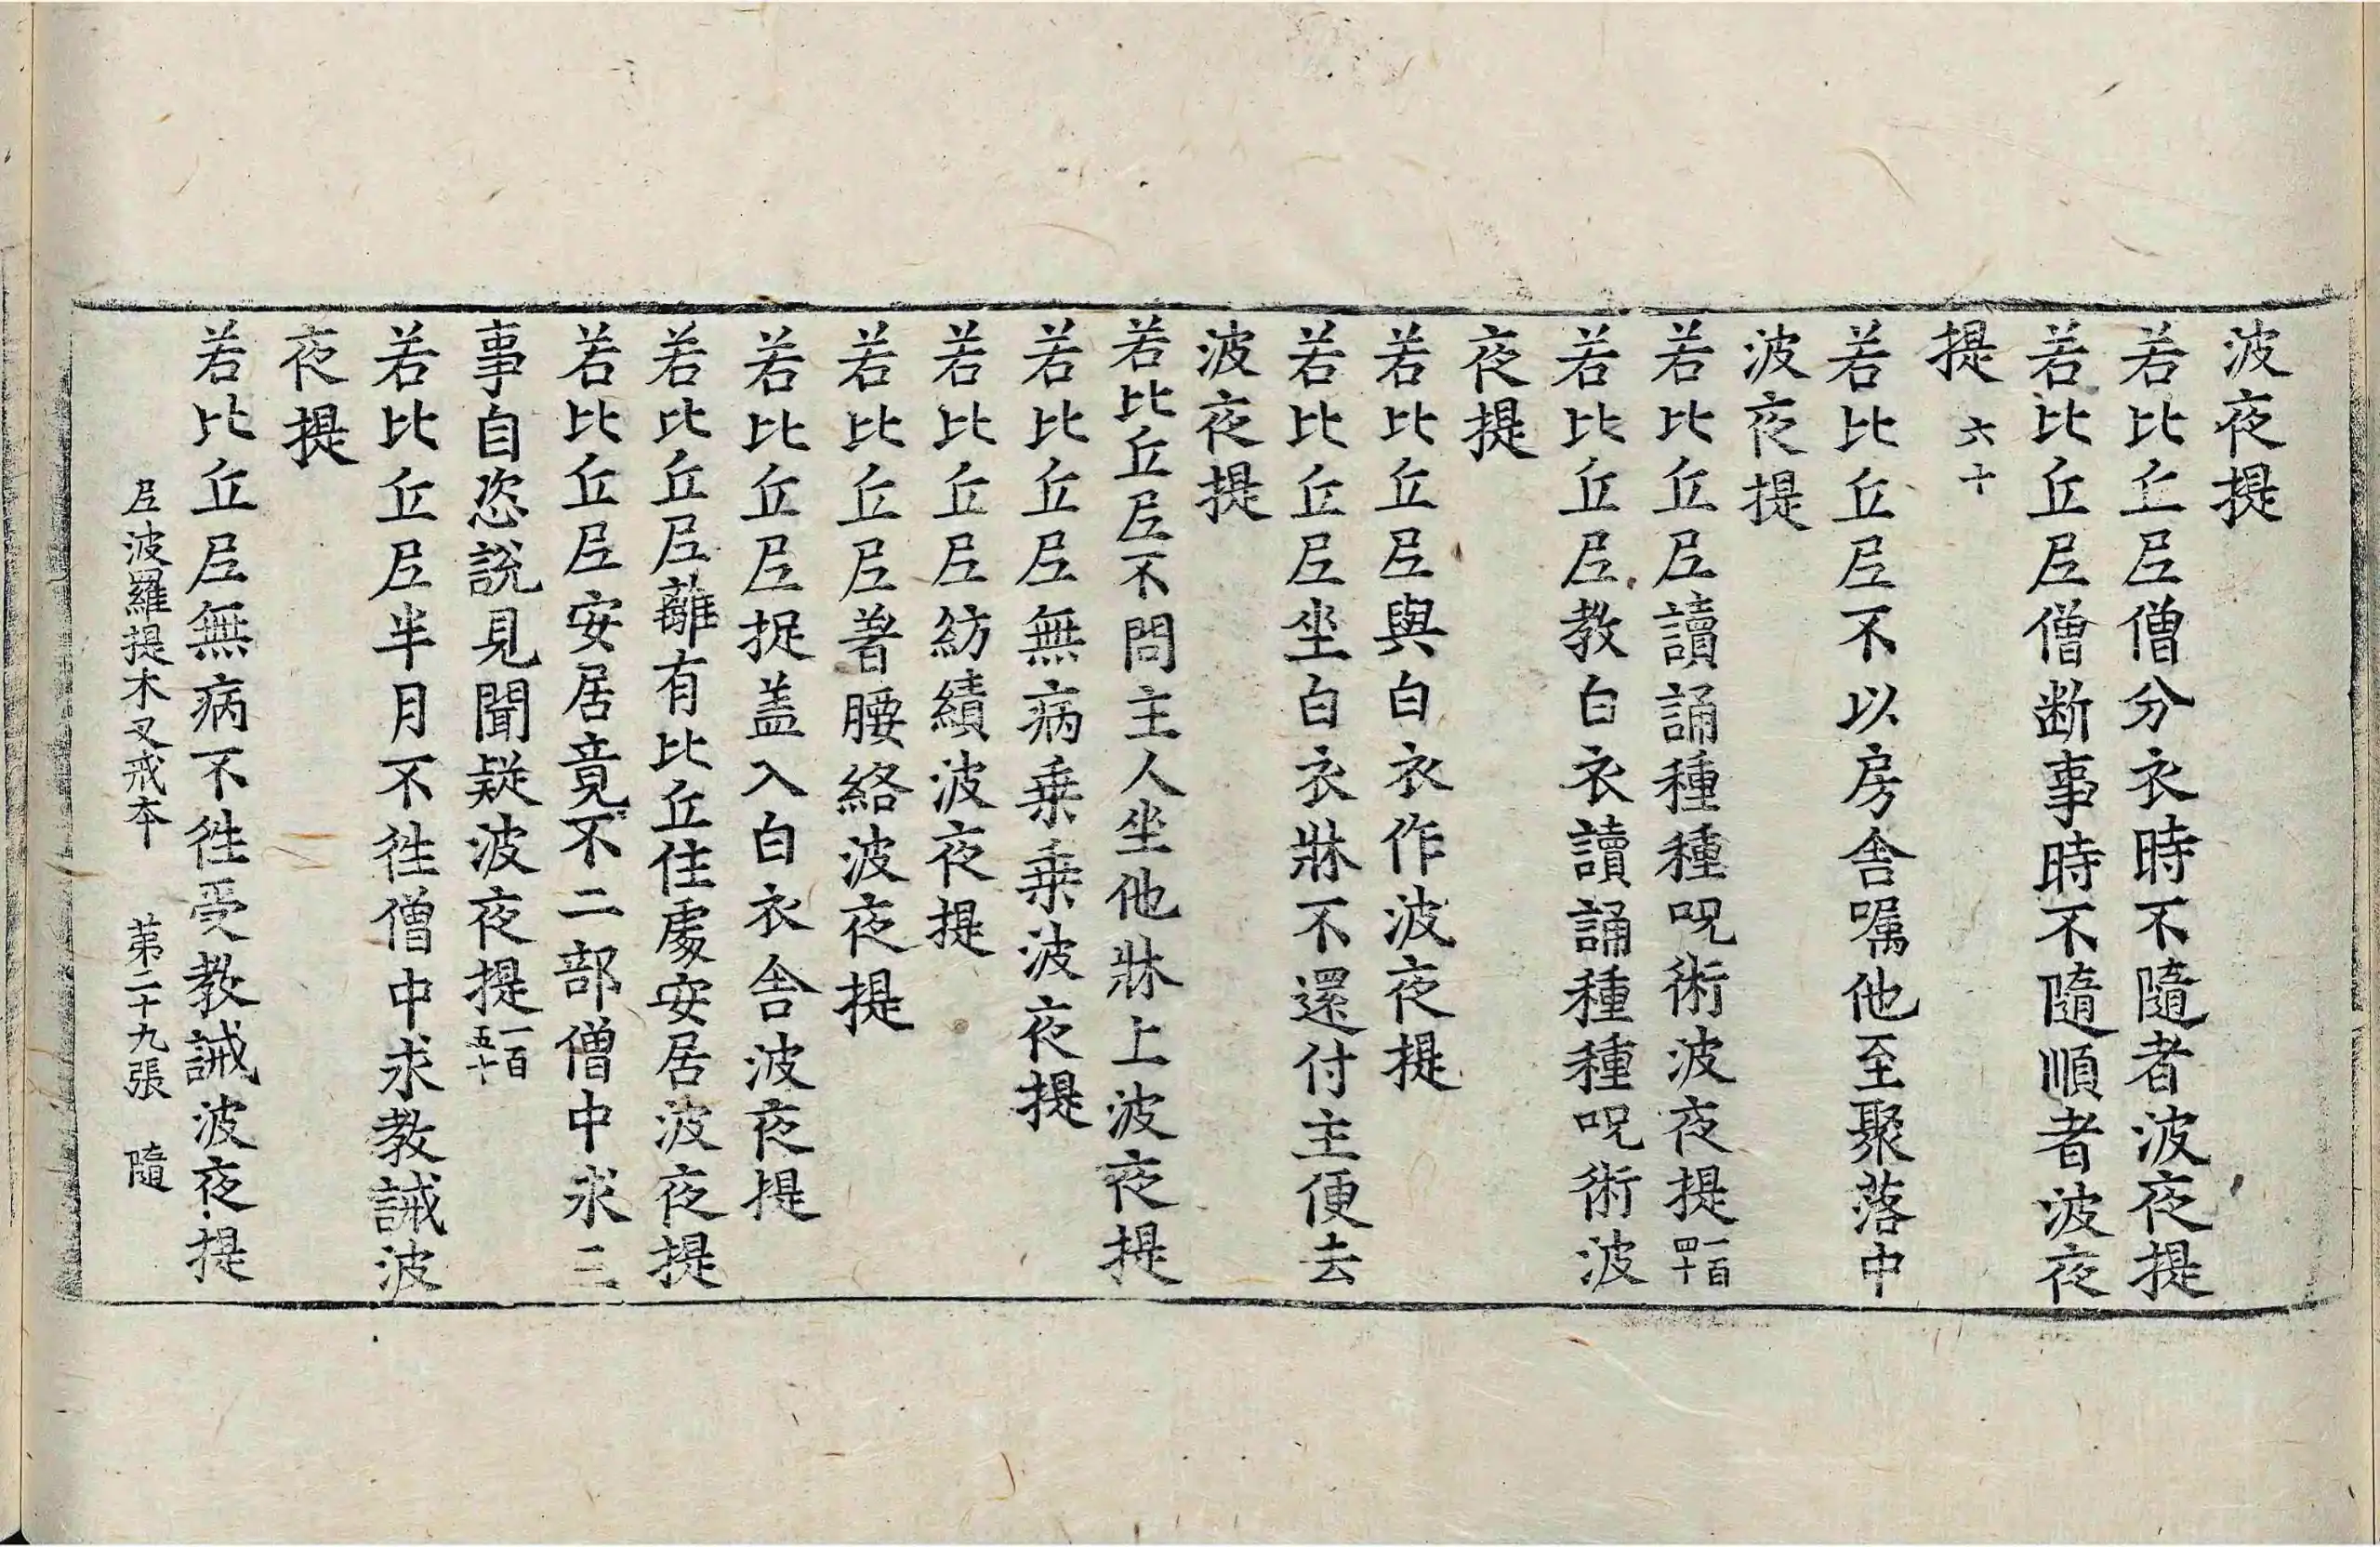 波夜提
若比丘尼僧分衣時不隨者波夜提
若比丘尼僧断事時不隨順者波夜
提 六十
若比丘尼不以房舍囑他至聚落中
波夜提
若比丘尼讀誦種種呪術波夜提一百四十
若比丘尼教白衣讀誦種種呪術波
夜提
若比丘尼與白衣作波夜提
若比丘尼坐白衣牀不還付主便去
波夜提
若比丘尼不問主人坐他牀上波夜提
若比丘尼無病乗乗波夜提
若比丘尼紡績波夜提
若比丘尼著腰絡波夜提
若比丘尼捉盖入白衣舍波夜提
若比丘尼離有比丘住處安居波夜提
若比丘尼安居竟不二部僧中求三
事自恣說見聞疑波夜提一百五十
若比丘尼半月不徃僧中求教誡波
夜提
若比丘尼無病不徃受教誡波夜提
尼波羅提木叉戒本 第二十九張 隨